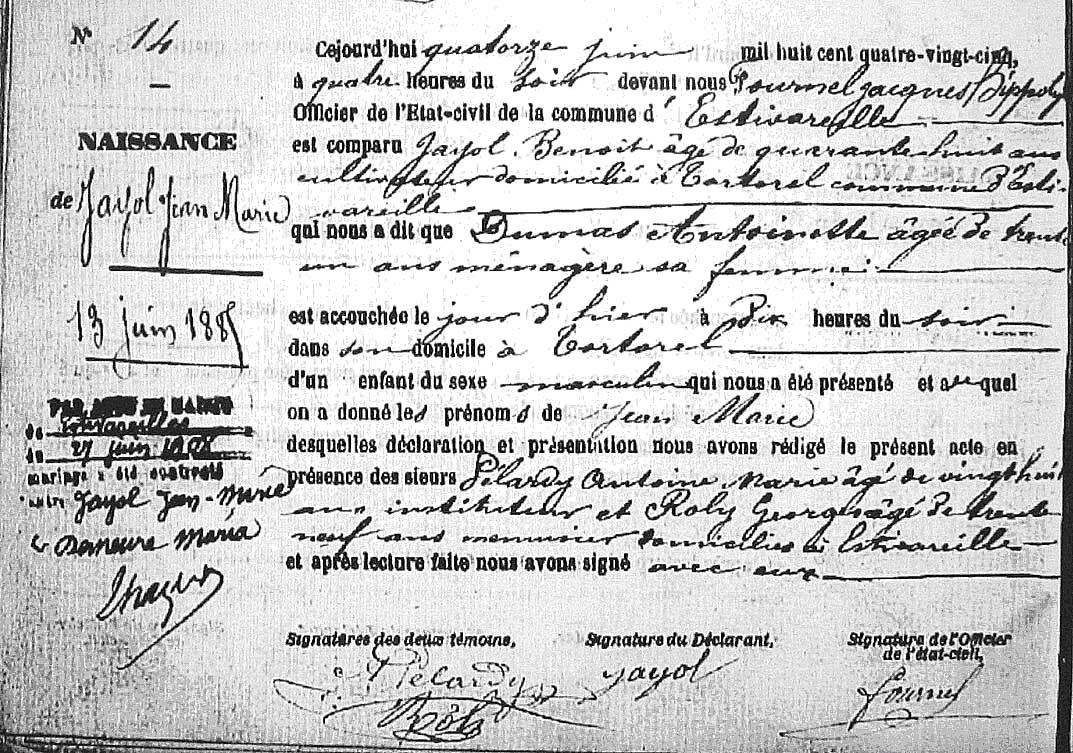 N° 14
NAISSANCE
de Jayol Jean Marie
13 juin 1885
27 juin
mariage a été contracté
entre Jayol Jean-Marie
& Demeure Maria
Cejourd'hui quatorze juin mil huit cent quatre-vingt-cinq,
à quatre heures du soir devant nous Fournel Jacques Hippoly
Officier de l'Etat-civil de la commune d' Estivareille
est comparu Jayol Benoit âgé de quarante huit ans
cultivateur domicilié à Tortorel commune d'Esti-
vareille
qui nous a dit que Dumas Antoinette âgée de trente
un ans ménagère sa femme
est accouchée le jour d'hier à Dix heures du soir
dans son domicile à Tortorel
d'un enfant du sexe masculin qui nous a été présenté et auquel
on a donné les prénoms de Jean Marie
desquelles déclaration et présentation nous avons rédigé le présent acte en
présence des sieurs Pélardy Antoine Marie âgé de vingt huit
ans instituteur et Roly Georges âgé de trente
neuf ans menuisier domiciliés à Estivareille
et après lecture faite nous avons signé avec eux
Signatures des deux témoins, Signature du Déclarant, Signature de l'Officier
de l'état-civil,
Pélardy Jayol Fournel